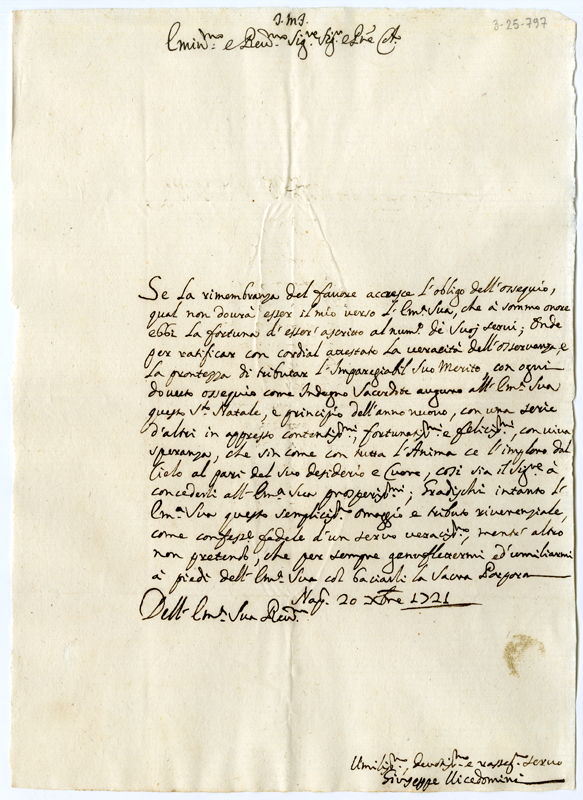 J.M.J.
3-25-797
Emin.mo e Rev.mo Sig.re Sig.r e P.ne
Se la rimembranza del favore accresce l'obligo dell'ossequio,
qual non dourà esser il mio verso l'Em.a Sua, che à sommo onore
ebbi la fortuna d'esser ascritto al num.o de Suoj serui; Onde
per ratificar con cordial attestato la veracità dell'osservanza, e
la prontezza di tributar l'Impareggiabil Suo Merito, con ogni
douuto ossequio come Indegno Sacerdote auguro all'Em.a Sua
questo S.to Natale, e principio dell'anno nuouo, con una serie
d'altri in appresso contentiss.mi, fortunatiss.mi e feliciss.mi, con uiua
speranza, che sin come con tutta l'Anima ce l'imploro dal
Cielo al pari del Suo desiderio e Cuore, così sia il Sig.re à
concederli all'Em.a Sua prosperiss.mi; Gradischi intanto l'
Em.a Sua questo sempliciss.mo omaggio e tributo riuerenziale,
come d'un seruo veraciss.mo, mentr'altro
non pretendo, che per sempre genuflettermi ed'umiliarmi
à piedi dell'Em.a Sua col baciarli la Sacra Porpora
Nap. 20 Xbre 1721
Dell'Em.a Sua Reu.ma
Umiliss.mo, deuotiss.mo e rasseg.mo seruo
Giuseppe Uicedomini